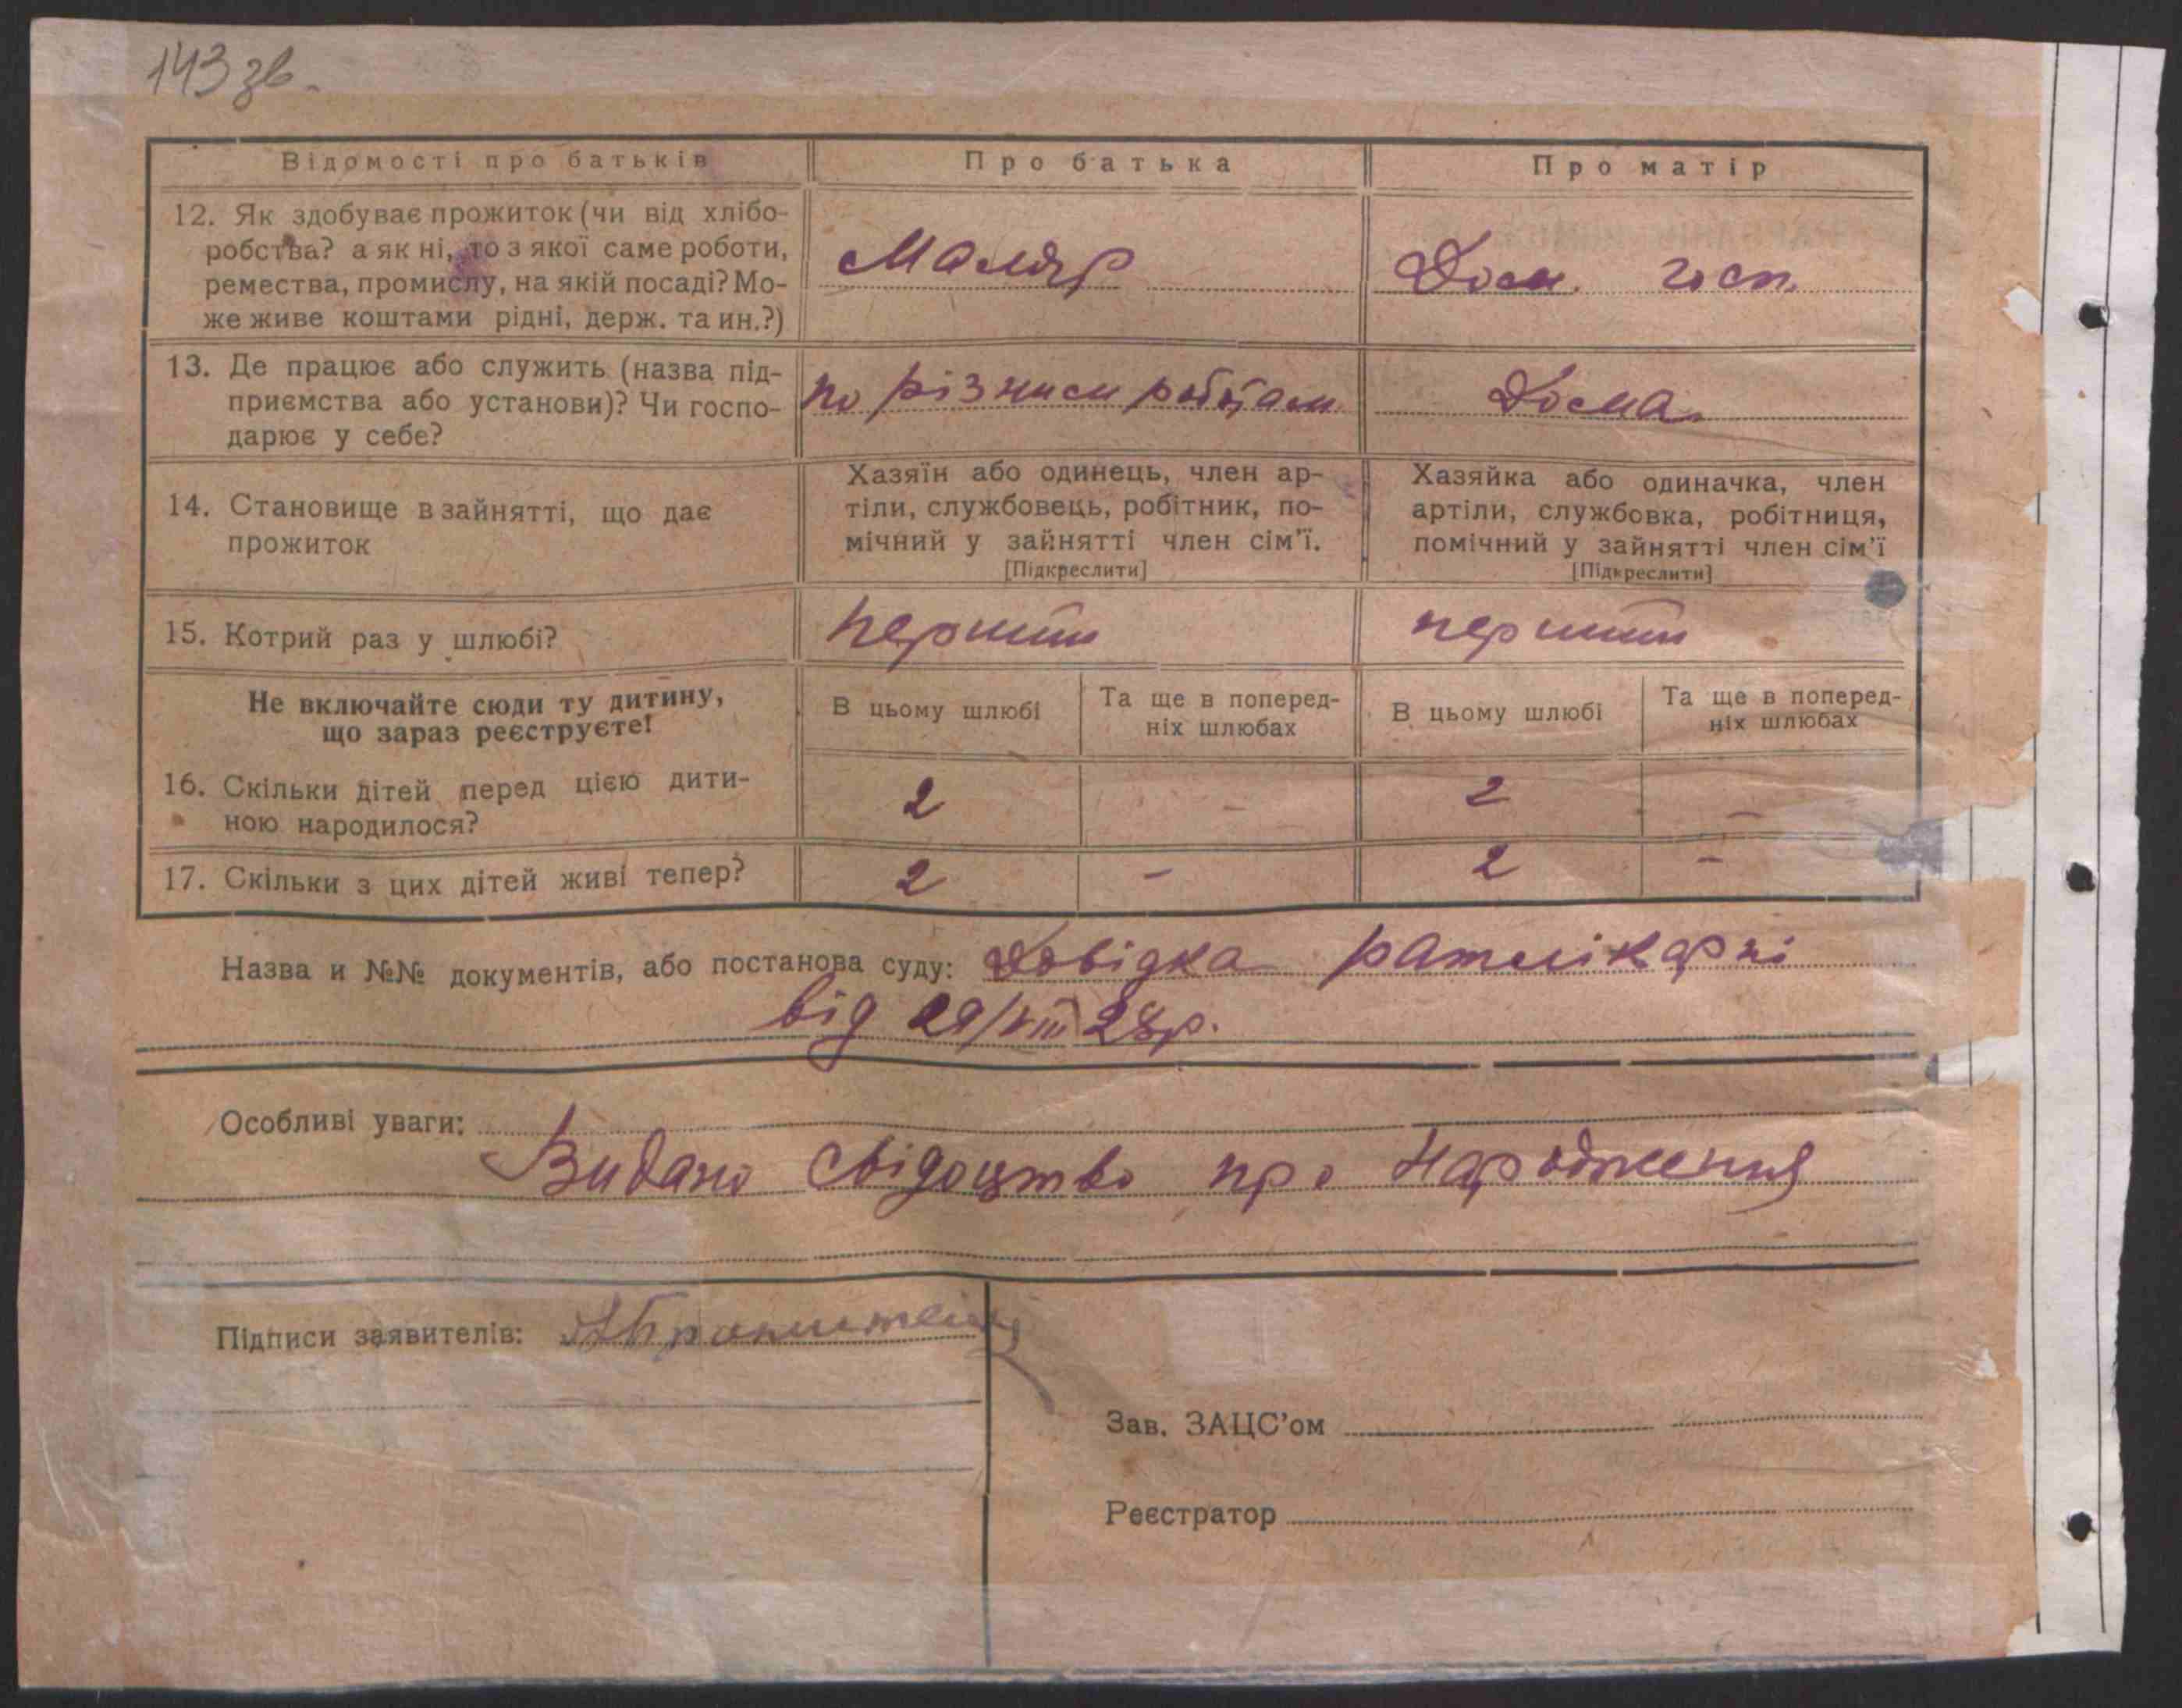 143 зв.
Відомості про батьків
Про батька
Про матір
12. Як здобуває прожиток (чи від хлібо-
робства? а як ні, то з якої саме роботи,
ремества, промислу, на якій посаді? Мо-
же живе коштами рідні, держ. та ин.?)
Маляр
Дом. госп.
13. Де працює або служить (назва під-
приємства або установи)? Чи госпо-
дарює у себе?
по різним роботам
Дома
14. Становище в зайнятті, що дає
прожиток
Хазяїн або одинець, член ар-
тіли, службовець, робітник, по-
мічний у зайнятті член сім'ї.
[Підкреслити]
Хазяйка або одиначка, член
артіли, службовка, робітниця,
помічний у зайнятті член сім'ї
[Підкреслити]
15. Котрий раз у шлюбі?
перший
перший
Не включайте сюди ту дитину,
що зараз реєструєте!
В цьому шлюбі
Та ще в поперед-
ніх шлюбах
В цьому шлюбі
Та ще в поперед-
ніх шлюбах
16. Скільки дітей перед цією дити-
ною народилося?
2 - 2 -
17. Скільки з цих дітей живі тепер?
2 - 2 -
Назва и №№ документів, або постанова суду: Довідка
від 29/VIII 28р.
Особливі уваги:
Видано свідоцтво про Народження
Підписи заявителів:
Зав. ЗАЦС'ом
Реєстратор